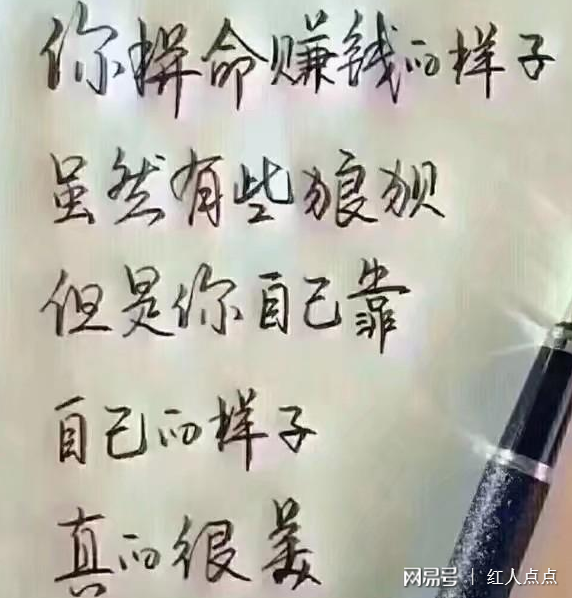 你拼命赚钱的样子
虽然有些狼狈
但是你自己靠
自己的样子
真的很美
网易号 | 红人点点